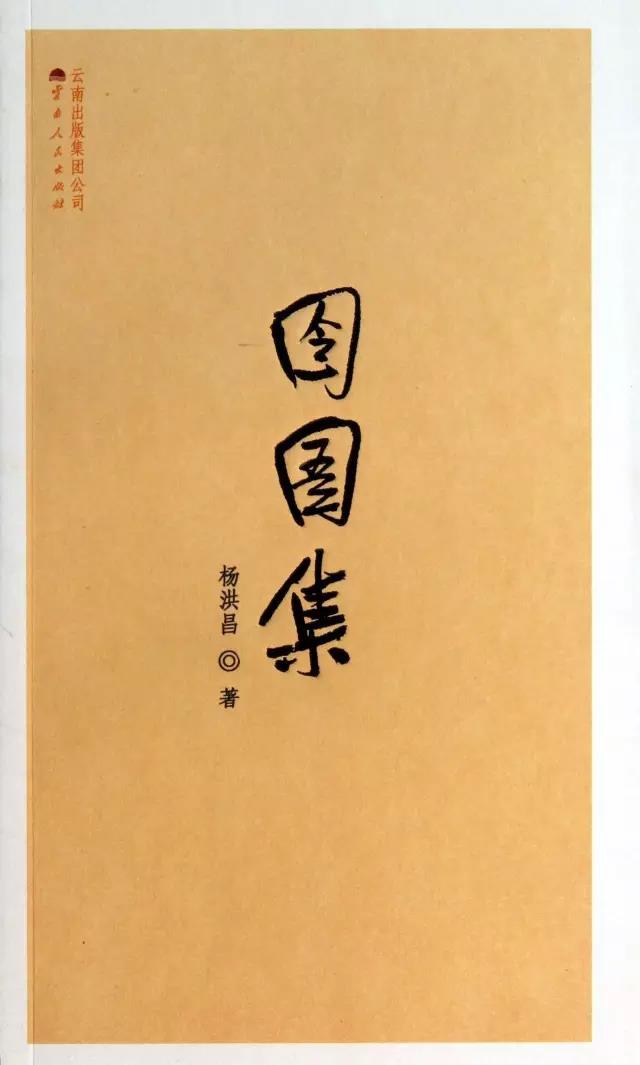 云南出版集团公司
云南人民出版社
囹圄集
杨洪昌 ◎ 著